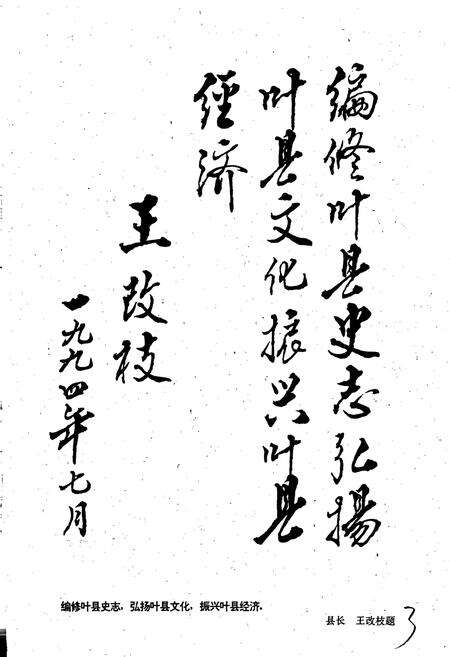 编修叶县史志弘揚
叶县文化振兴叶县
經济
王改枝
一九九四年七月
编修叶县史志，弘扬叶县文化，振兴叶县经济。
县长 王改枝题
3